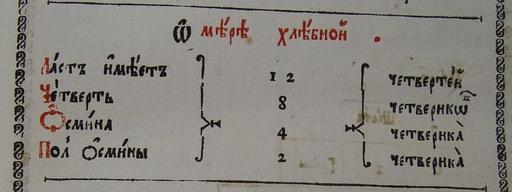 Ѿ мѣ́рѣ хлѣ́бной .
Ла́стъ и҆мѣ́етъ 12 четвертей
Че́тверть 8 четверикѡ́въ
Ѻсми́на 4 четверика̀
Пол̾ ѻсми́ны 2 четверика̀